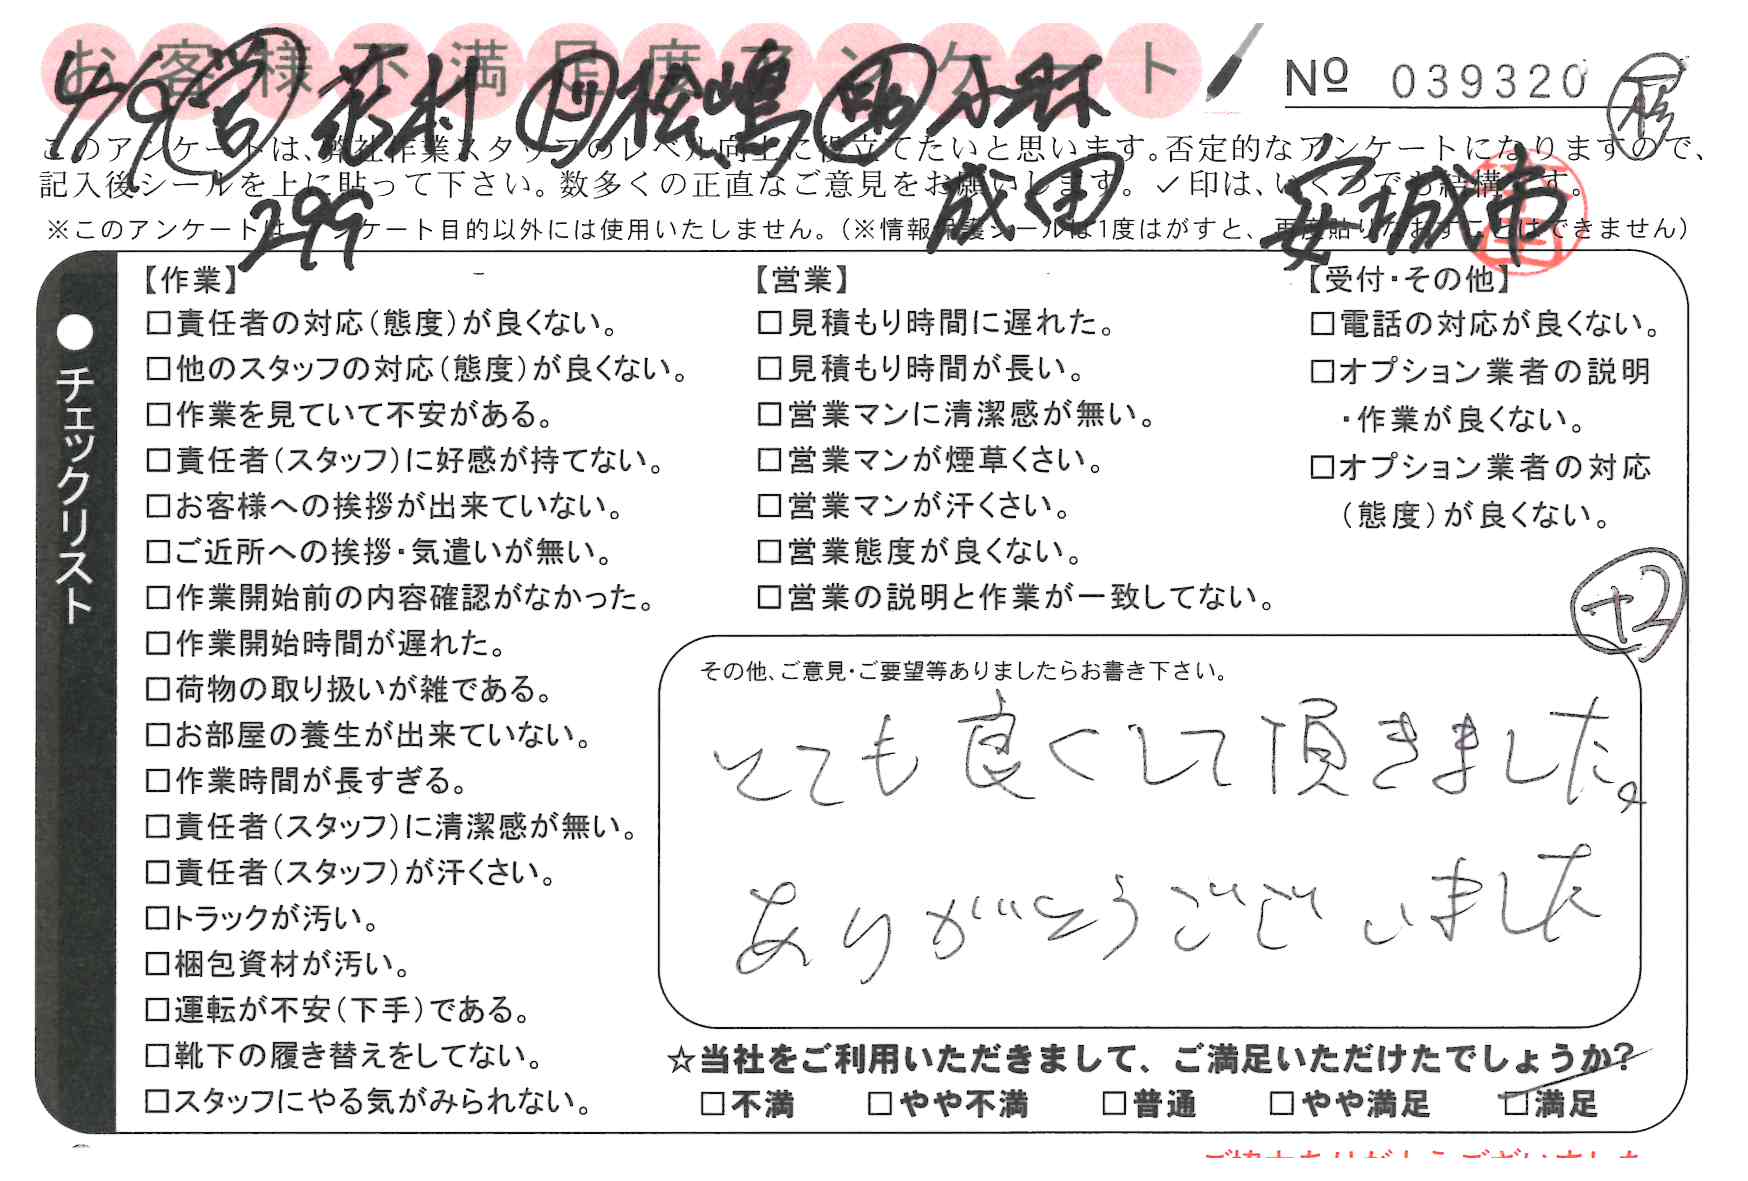 お客様不満足度アンケート
No 039320
4/9 営 花村 リ 松嶋 助 小林
成田 安城市
299
このアンケートは、弊社作業スタッフのレベル向上に役立てたいと思います。否定的なアンケートになりますので、
記入後シールを上に貼って下さい。数多くの正直なご意見をお願いします。✓印は、いくつでも結構です。
※このアンケートは、アンケート目的以外には使用いたしません。(※情報保護シールは1度はがすと、再度貼りなおすことはできません)
●チェックリスト
【作業】
□責任者の対応(態度)が良くない。
□他のスタッフの対応(態度)が良くない。
□作業を見ていて不安がある。
□責任者(スタッフ)に好感が持てない。
□お客様への挨拶が出来ていない。
□ご近所への挨拶・気遣いが無い。
□作業開始前の内容確認がなかった。
□作業開始時間が遅れた。
□荷物の取り扱いが雑である。
□お部屋の養生が出来ていない。
□作業時間が長すぎる。
□責任者(スタッフ)に清潔感が無い。
□責任者(スタッフ)が汗くさい。
□トラックが汚い。
□梱包資材が汚い。
□運転が不安(下手)である。
□靴下の履き替えをしてない。
□スタッフにやる気がみられない。
【営業】
□見積もり時間に遅れた。
□見積もり時間が長い。
□営業マンに清潔感が無い。
□営業マンが煙草くさい。
□営業マンが汗くさい。
□営業態度が良くない。
□営業の説明と作業が一致してない。
【受付・その他】
□電話の対応が良くない。
□オプション業者の説明
・作業が良くない。
□オプション業者の対応
(態度)が良くない。
+2
その他、ご意見・ご要望等ありましたらお書き下さい。
とても良くして頂きました。
ありがとうございました
☆当社をご利用いただきまして、ご満足いただけたでしょうか?
□不満 □やや不満 □普通 □やや満足 □満足
ご協力ありがとうございました